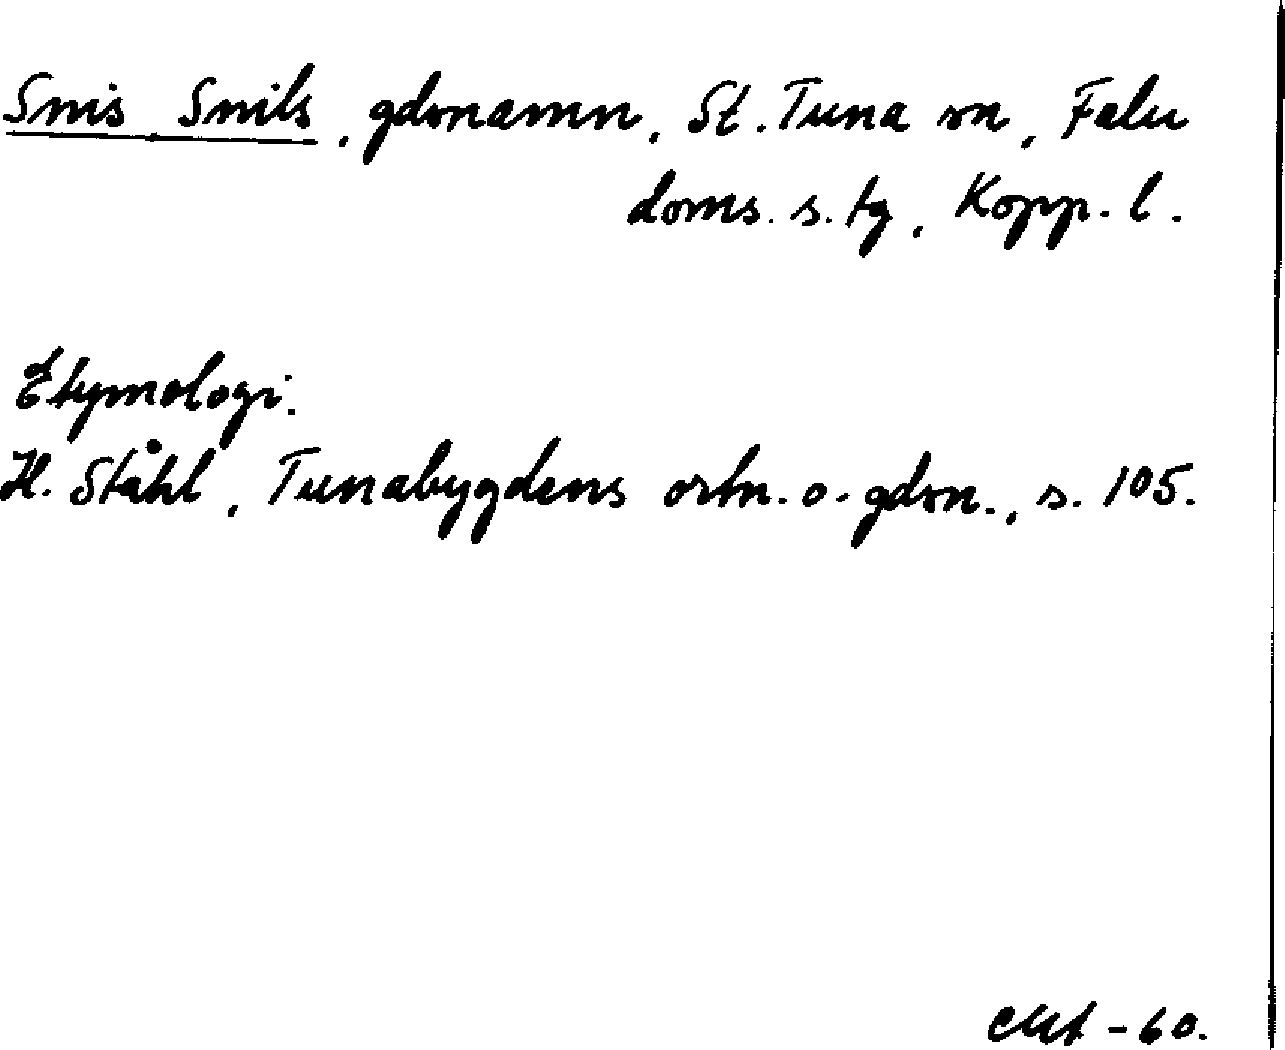 Snis Snils, gdsnamn, St. Tuna sn, Falu
doms. s. tg, Kopp. l.
Etymologi.
H. Ståhl, Tunabygdens ortn. o. gdsn., s. 105.
-60.